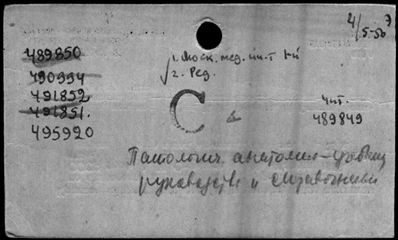 4/5-50
489850
490994
491852
491851.
495920
1. Моск. мед. ин-т
2. Ред.
С
чит.
489849
Патологич. анатомия -
руководств и справочники